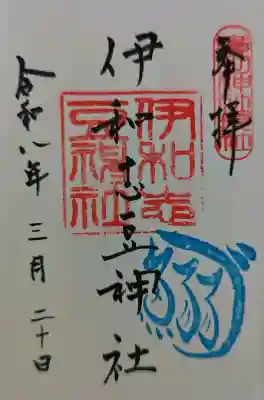 奉拝
伊和志豆神社
伊和志
豆神社
令和八年 三月 二十日